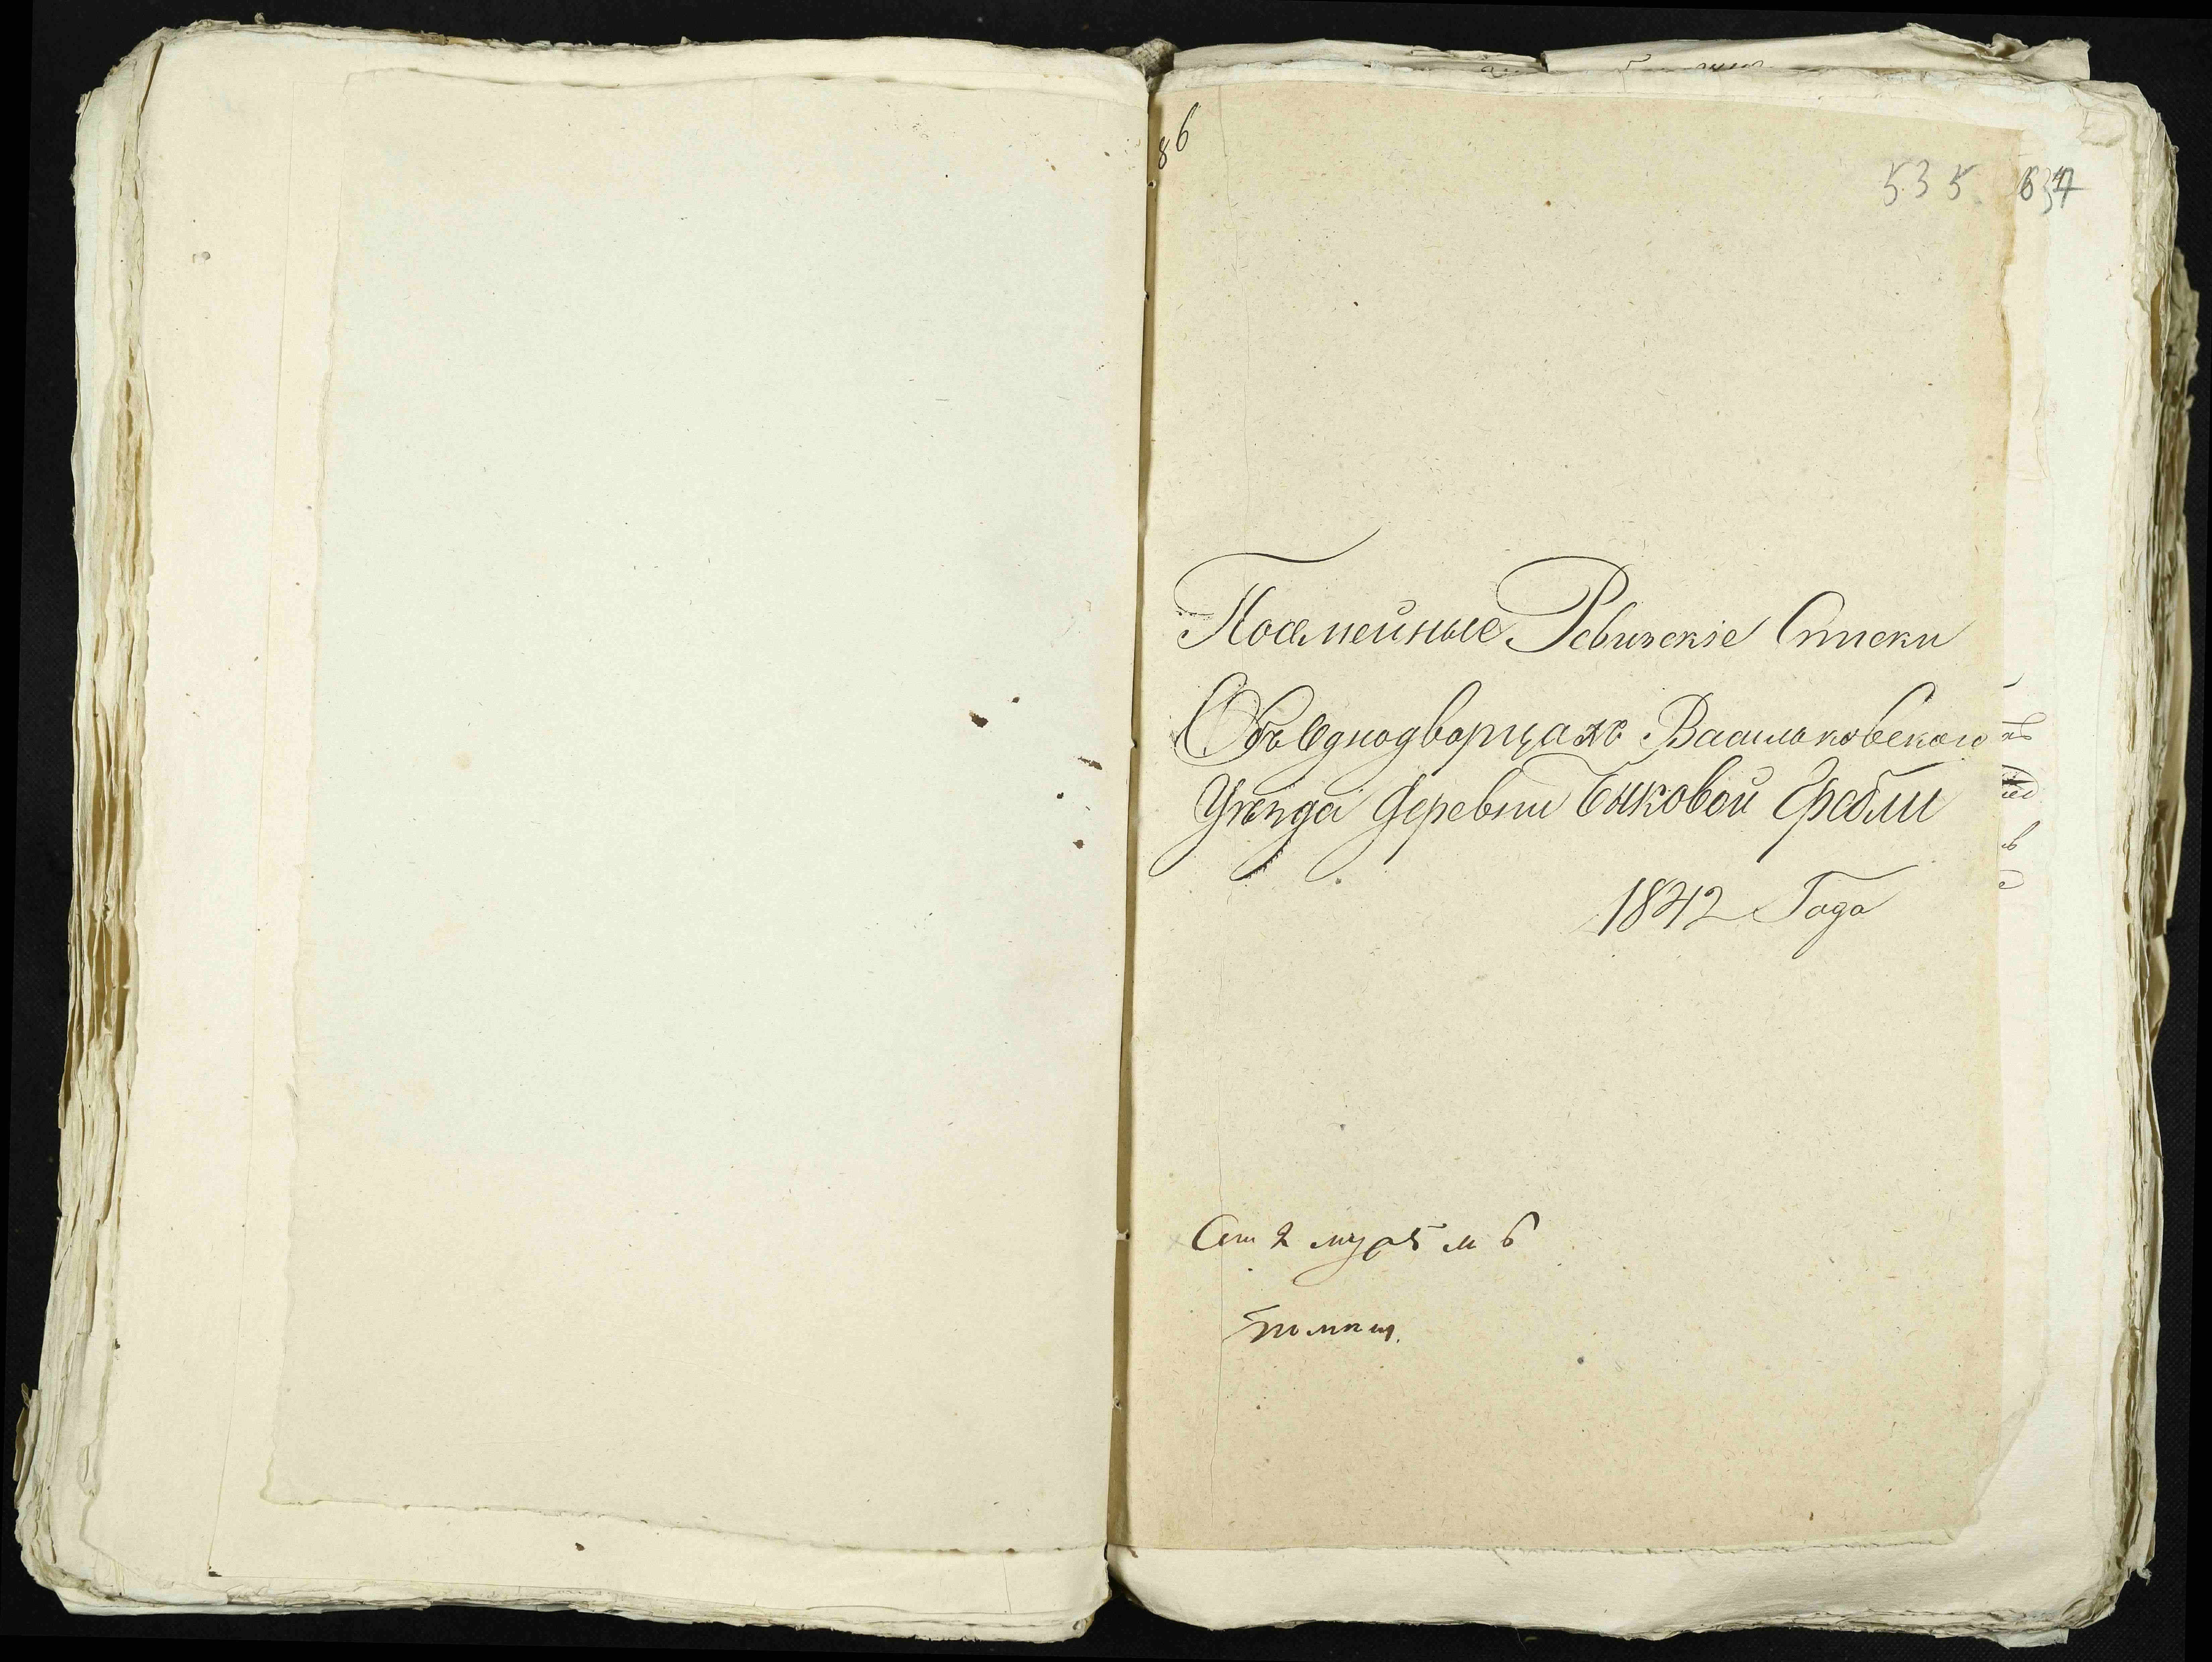 86
535
Посемейные Ревизскіе Списки
Объ Однодворцахъ Васильковского
Уѣзда Деревни Быковой Гребли
1842 Года
Сем 2 муж 5 м 6